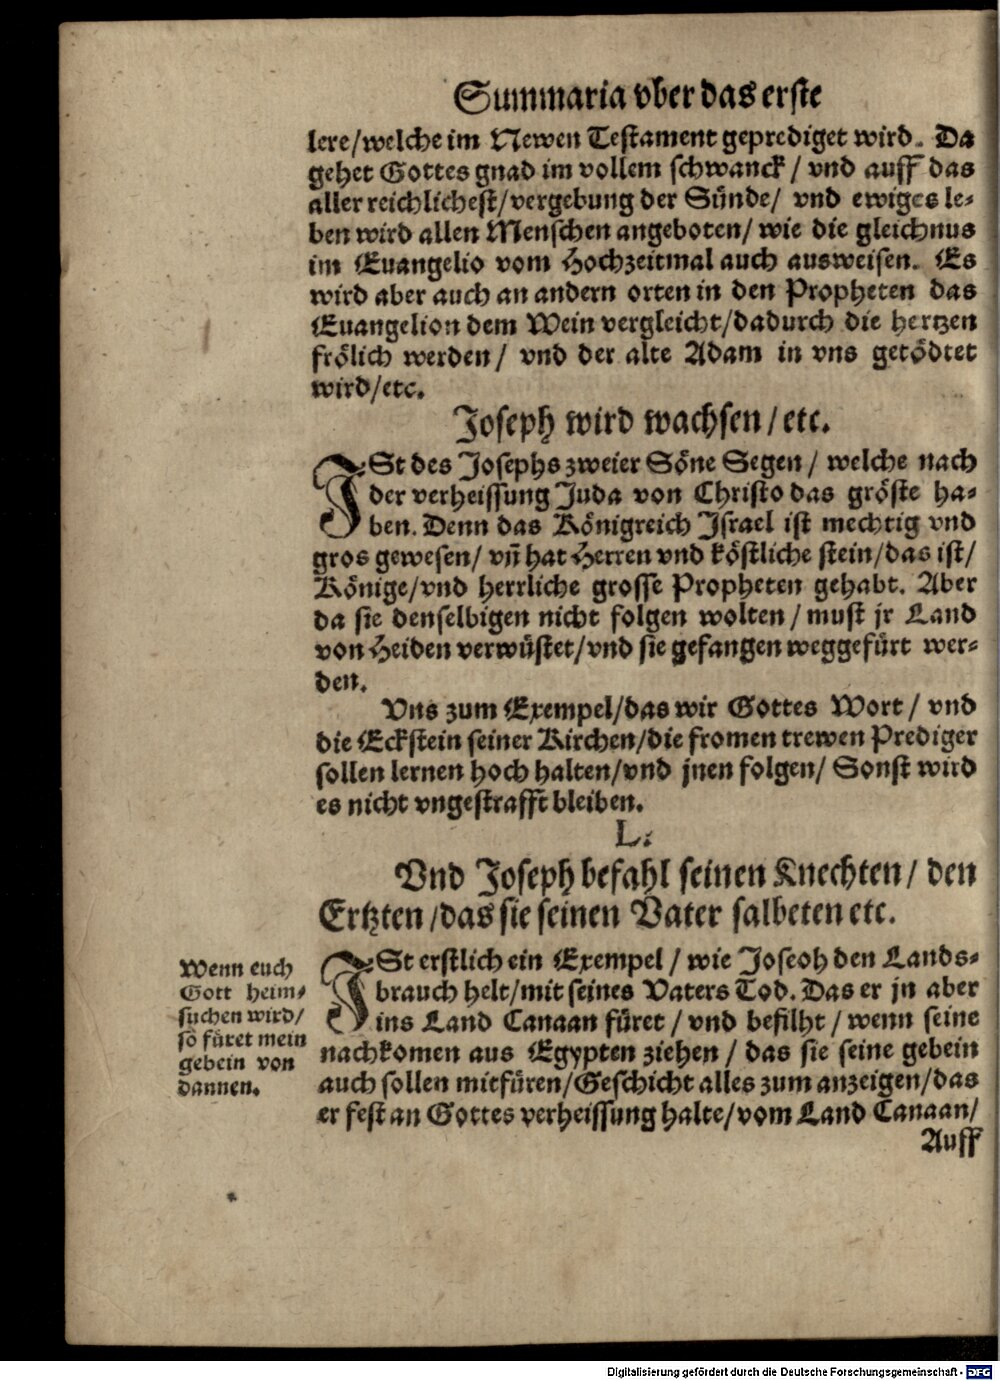 Summaria vber das erste
lere/welche im Newen Testament geprediget wird. Da
gehet Gottes gnad im vollem schwanck / vnd auff das
aller reichlichest/vergebung der Sünde/ vnd ewiges le-
ben wird allen Menschen angeboten/ wie die gleichnus
im Euangelio vom Hochzeitmal auch ausweisen. Es
wird aber auch an andern orten in den Propheten das
Euangelion dem Wein vergleicht/dadurch die hertzen
frölich werden/ vnd der alte Adam in vns getödtet
wird/etc.
Joseph wird wachsen / etc.
JSt des Josephs zweier Söne Segen / welche nach
der verheissung Juda von Christo das gröste ha-
ben. Denn das Königreich Jsrael ist mechtig vnd
gros gewesen/ vñ hat Herren vnd köstliche stein/das ist/
Könige/vnd herrliche grosse Propheten gehabt. Aber
da sie denselbigen nicht folgen wolten / must jr Land
von Heiden verwüstet/vnd sie gefangen weggefürt wer-
den.
Vns zum Exempel/das wir Gottes Wort / vnd
die Eckstein seiner Kirchen/die fromen trewen Prediger
sollen lernen hoch halten/vnd jnen folgen/ Sonst wird
es nicht vngestrafft bleiben.
L.
Vnd Joseph befahl seinen Knechten / den
Ertzten /das sie seinen Vater salbeten etc.
JSt erstlich ein Exempel / wie Joseoh den Lands-
brauch helt/mit seines Vaters Tod. Das er jn aber
ins Land Canaan füret / vnd befilht / wenn seine
nachkomen aus Egypten ziehen / das sie seine gebein
auch sollen mitfüren/Geschicht alles zum anzeigen/das
er fest an Gottes verheissung halte/vom Land Canaan/
Auff
Wenn euch
Gott heim-
suchen wird/
so füret mein
gebein von
dannen.
Digitalisierung gefördert durch die Deutsche Forschungsgemeinschaft - DFG